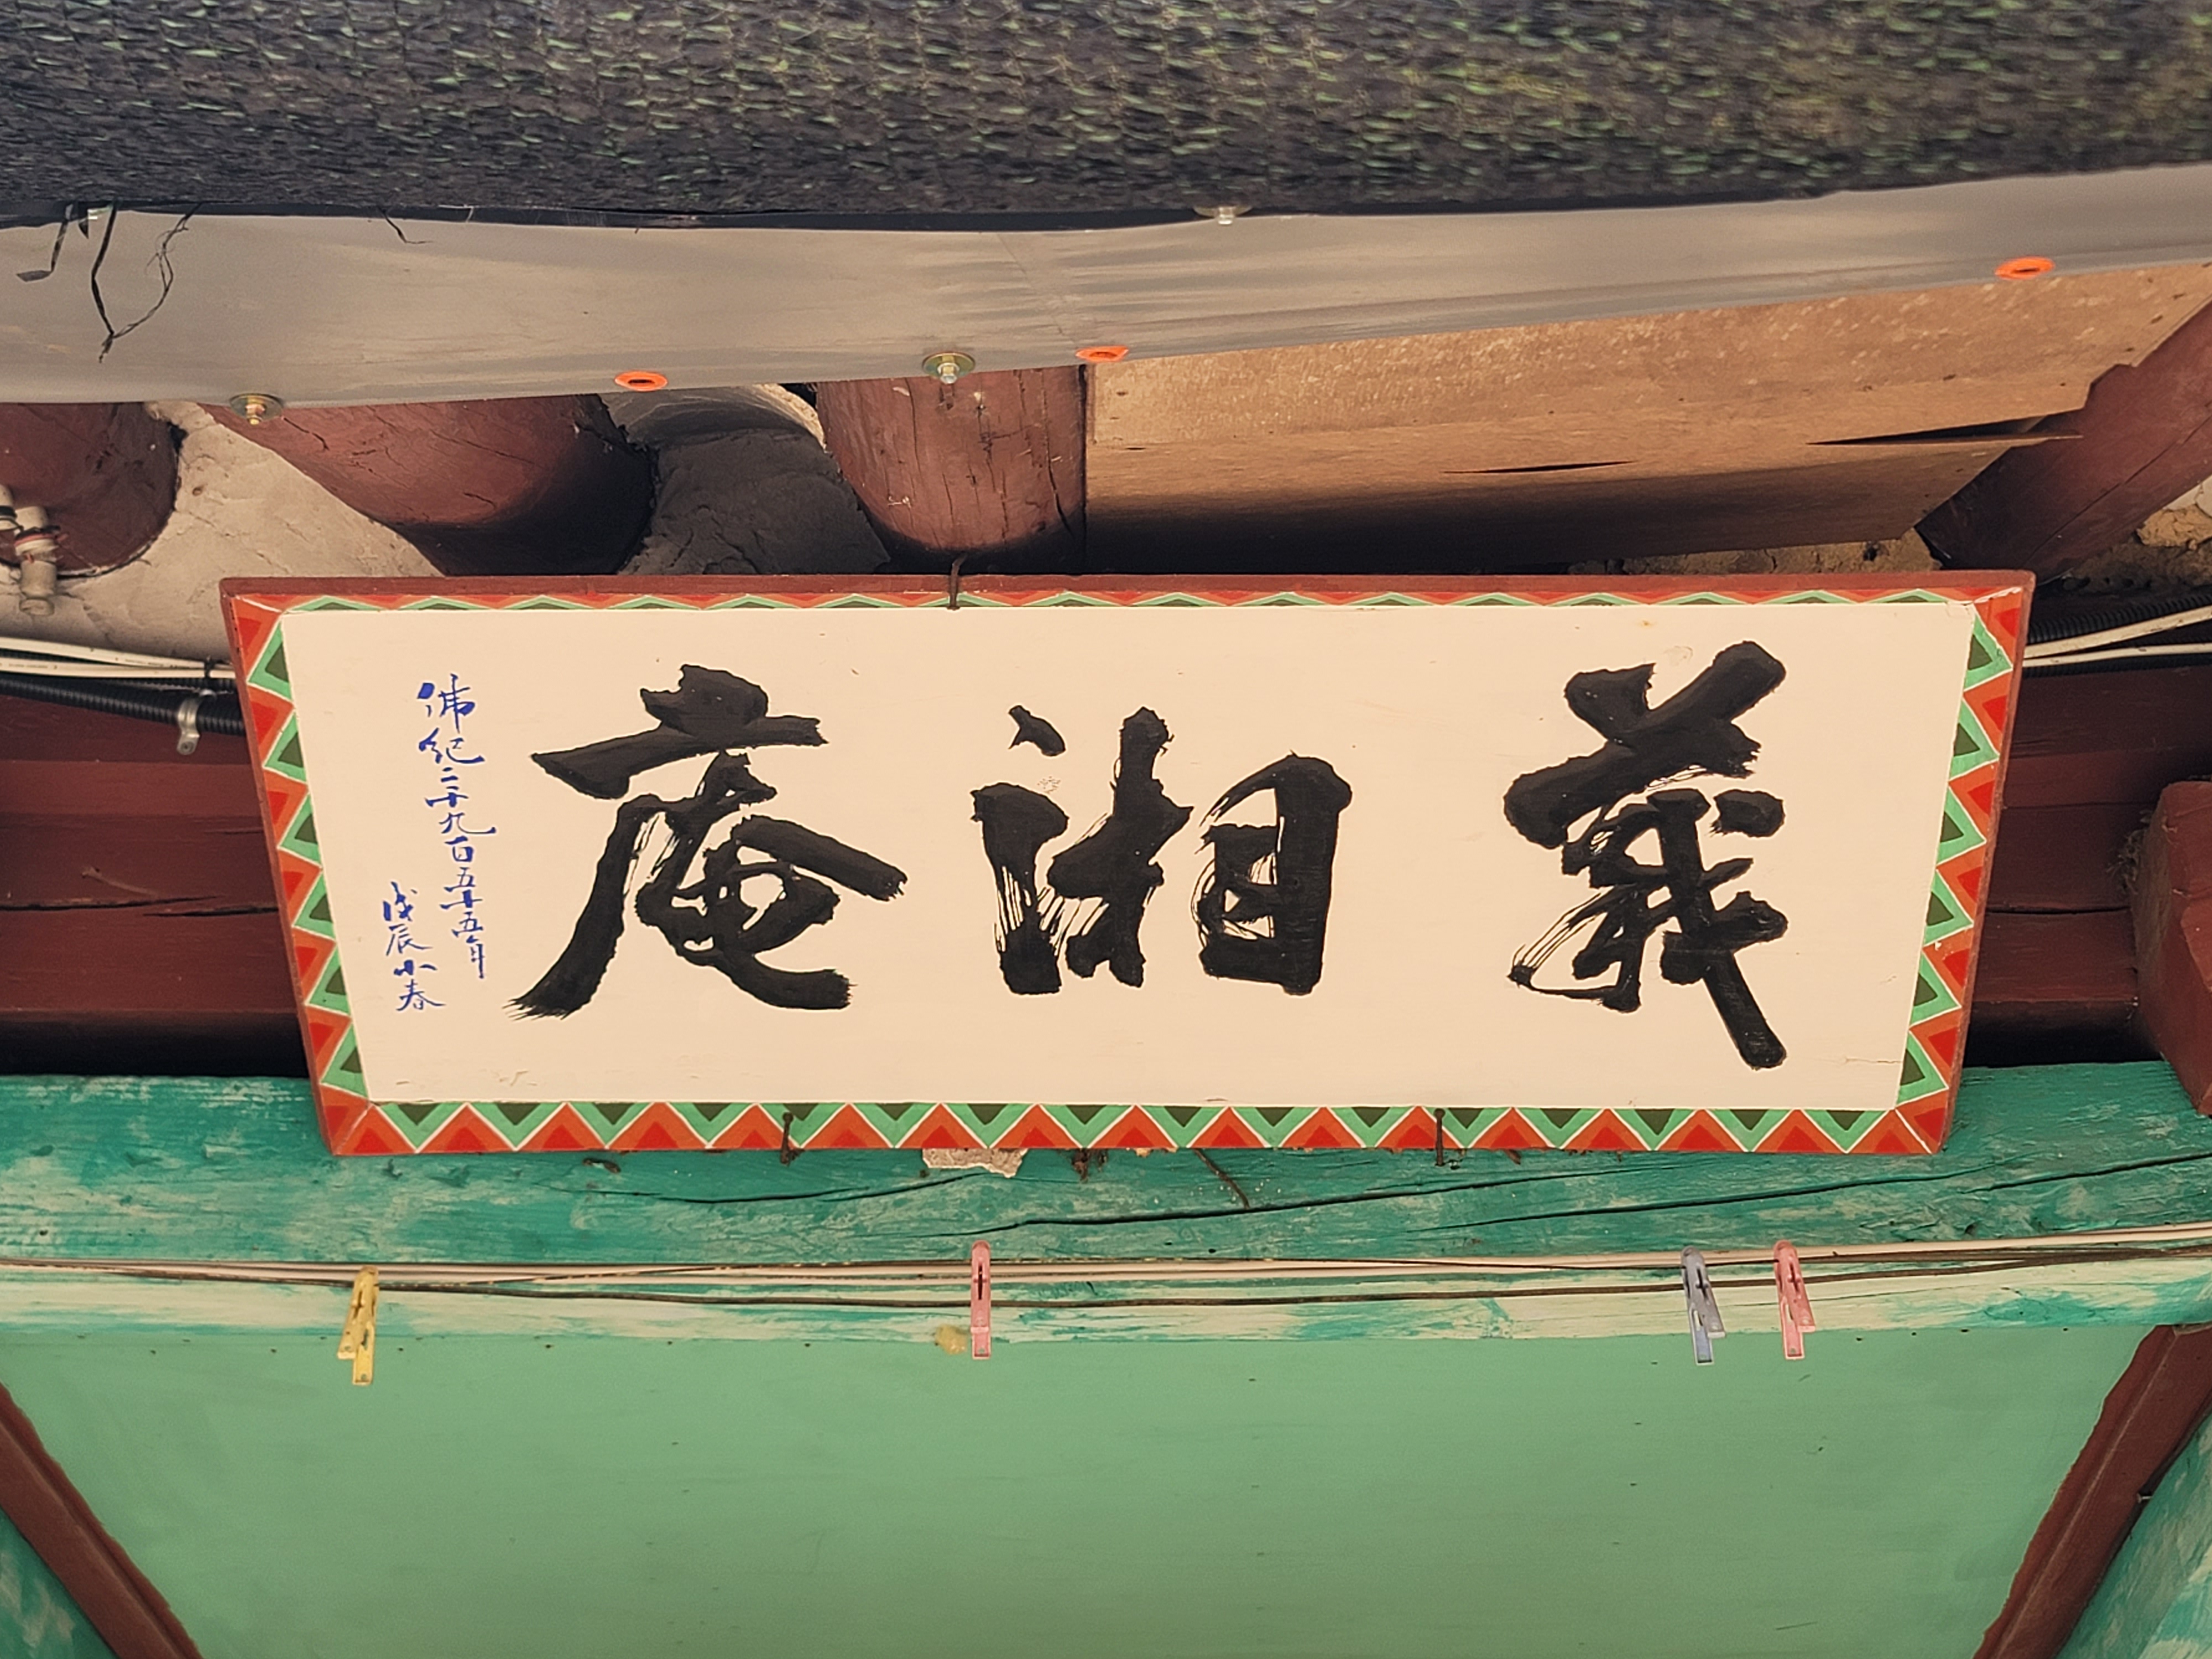 義湘庵
佛紀二千九百五十五年
戊辰小春